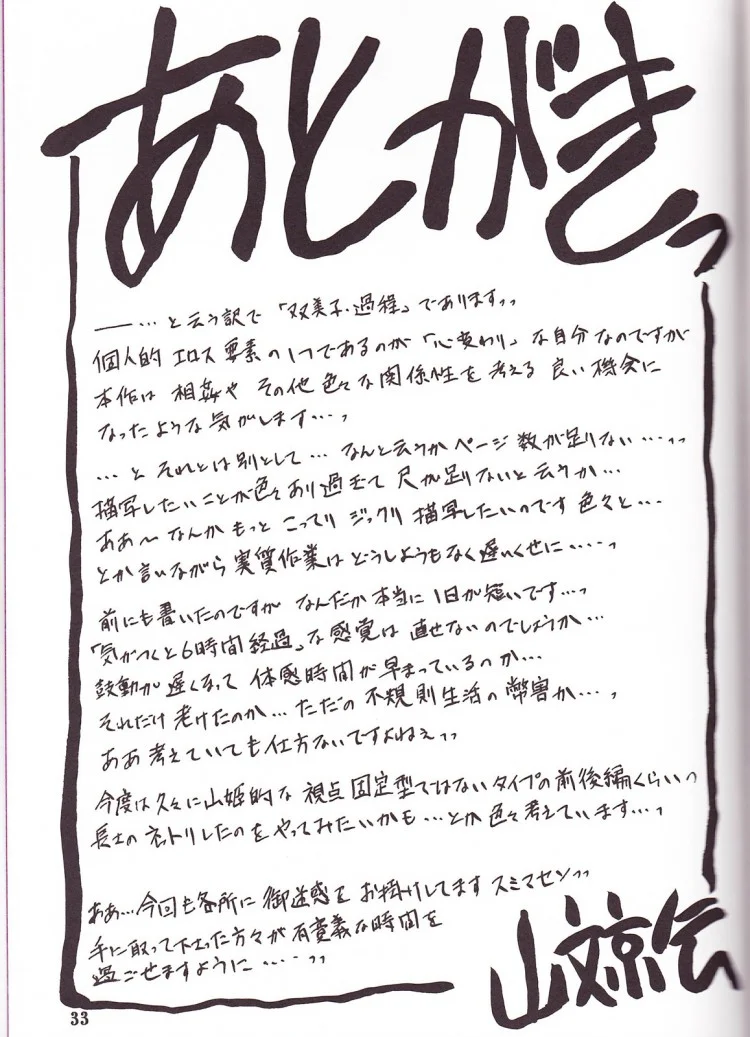 あとがきっ
―…と云う訳で「双美子・過程」でありますッッ
個人的エロス要素の1つであるのが「心変わり」な自分なのですが
本作は相姦やその他色々な関係性を考える良い機会に
なったような気がします…ッ
…とそれとは別として…なんと云うかページ数が足りない…ッッ
描写したいことが色々あり過ぎて尺が足りないと云うか…
ああ〜なんかもっとこってりジックリ描写したいのです色々と…
とか言いながら実質作業はどうしようもなく遅いくせに……ッ
前にも書いたのですがなんだか本当に1日が短いです…ッ
「気がつくと6時間経過」な感覚は直せないのでしょうか…
鼓動が遅くなって体感時間が早まっているのか…
それだけ老けたのか…ただの不規則生活の弊害か…ッ
ああ考えていても仕方ないですよねぇッッ
今度は久々に山姫的な視点固定型ではないタイプの前後編くらいっ
長さのネットリしたのをやってみたいかも…とか色々考えています…ッ
ああ…今回も各所に御迷惑をお掛けしてますスミマセンッッ
手に取って下さった方々が有意義な時間を
過ごせますように……ッッ
山文京伝
33